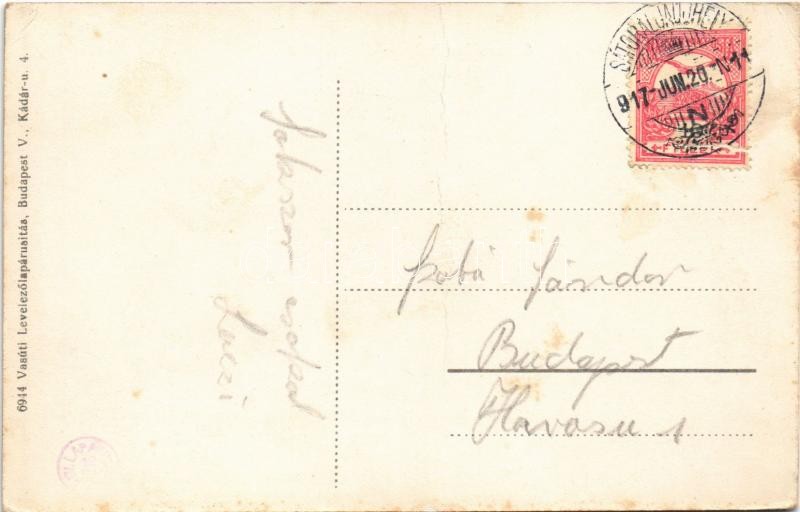 6944 Vasúti Levelezőlapárusitás, Budapest V., Kádár-u. 4.
Sokszor csókol
Laczi
SÁTORALJAUJHELY
917-JUN.20.-N11
Szabó Sándor
Budapest
Havas u 1